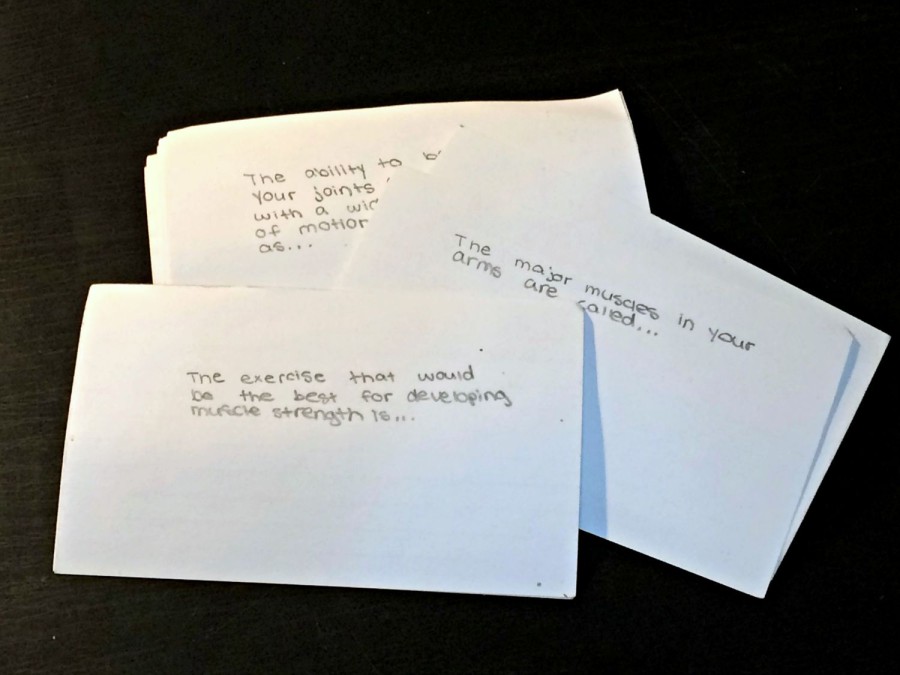 The ability to
your joints
with a
of motion
as...
The major muscles in your
arms are called...
The exercise that would
be the best for developing
muscle strength is...